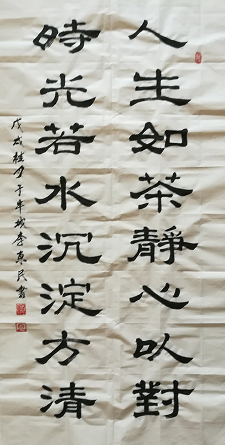 人生如茶靜心以對
時光若水沉淀方清
戊戌桂月于牛城李東民書